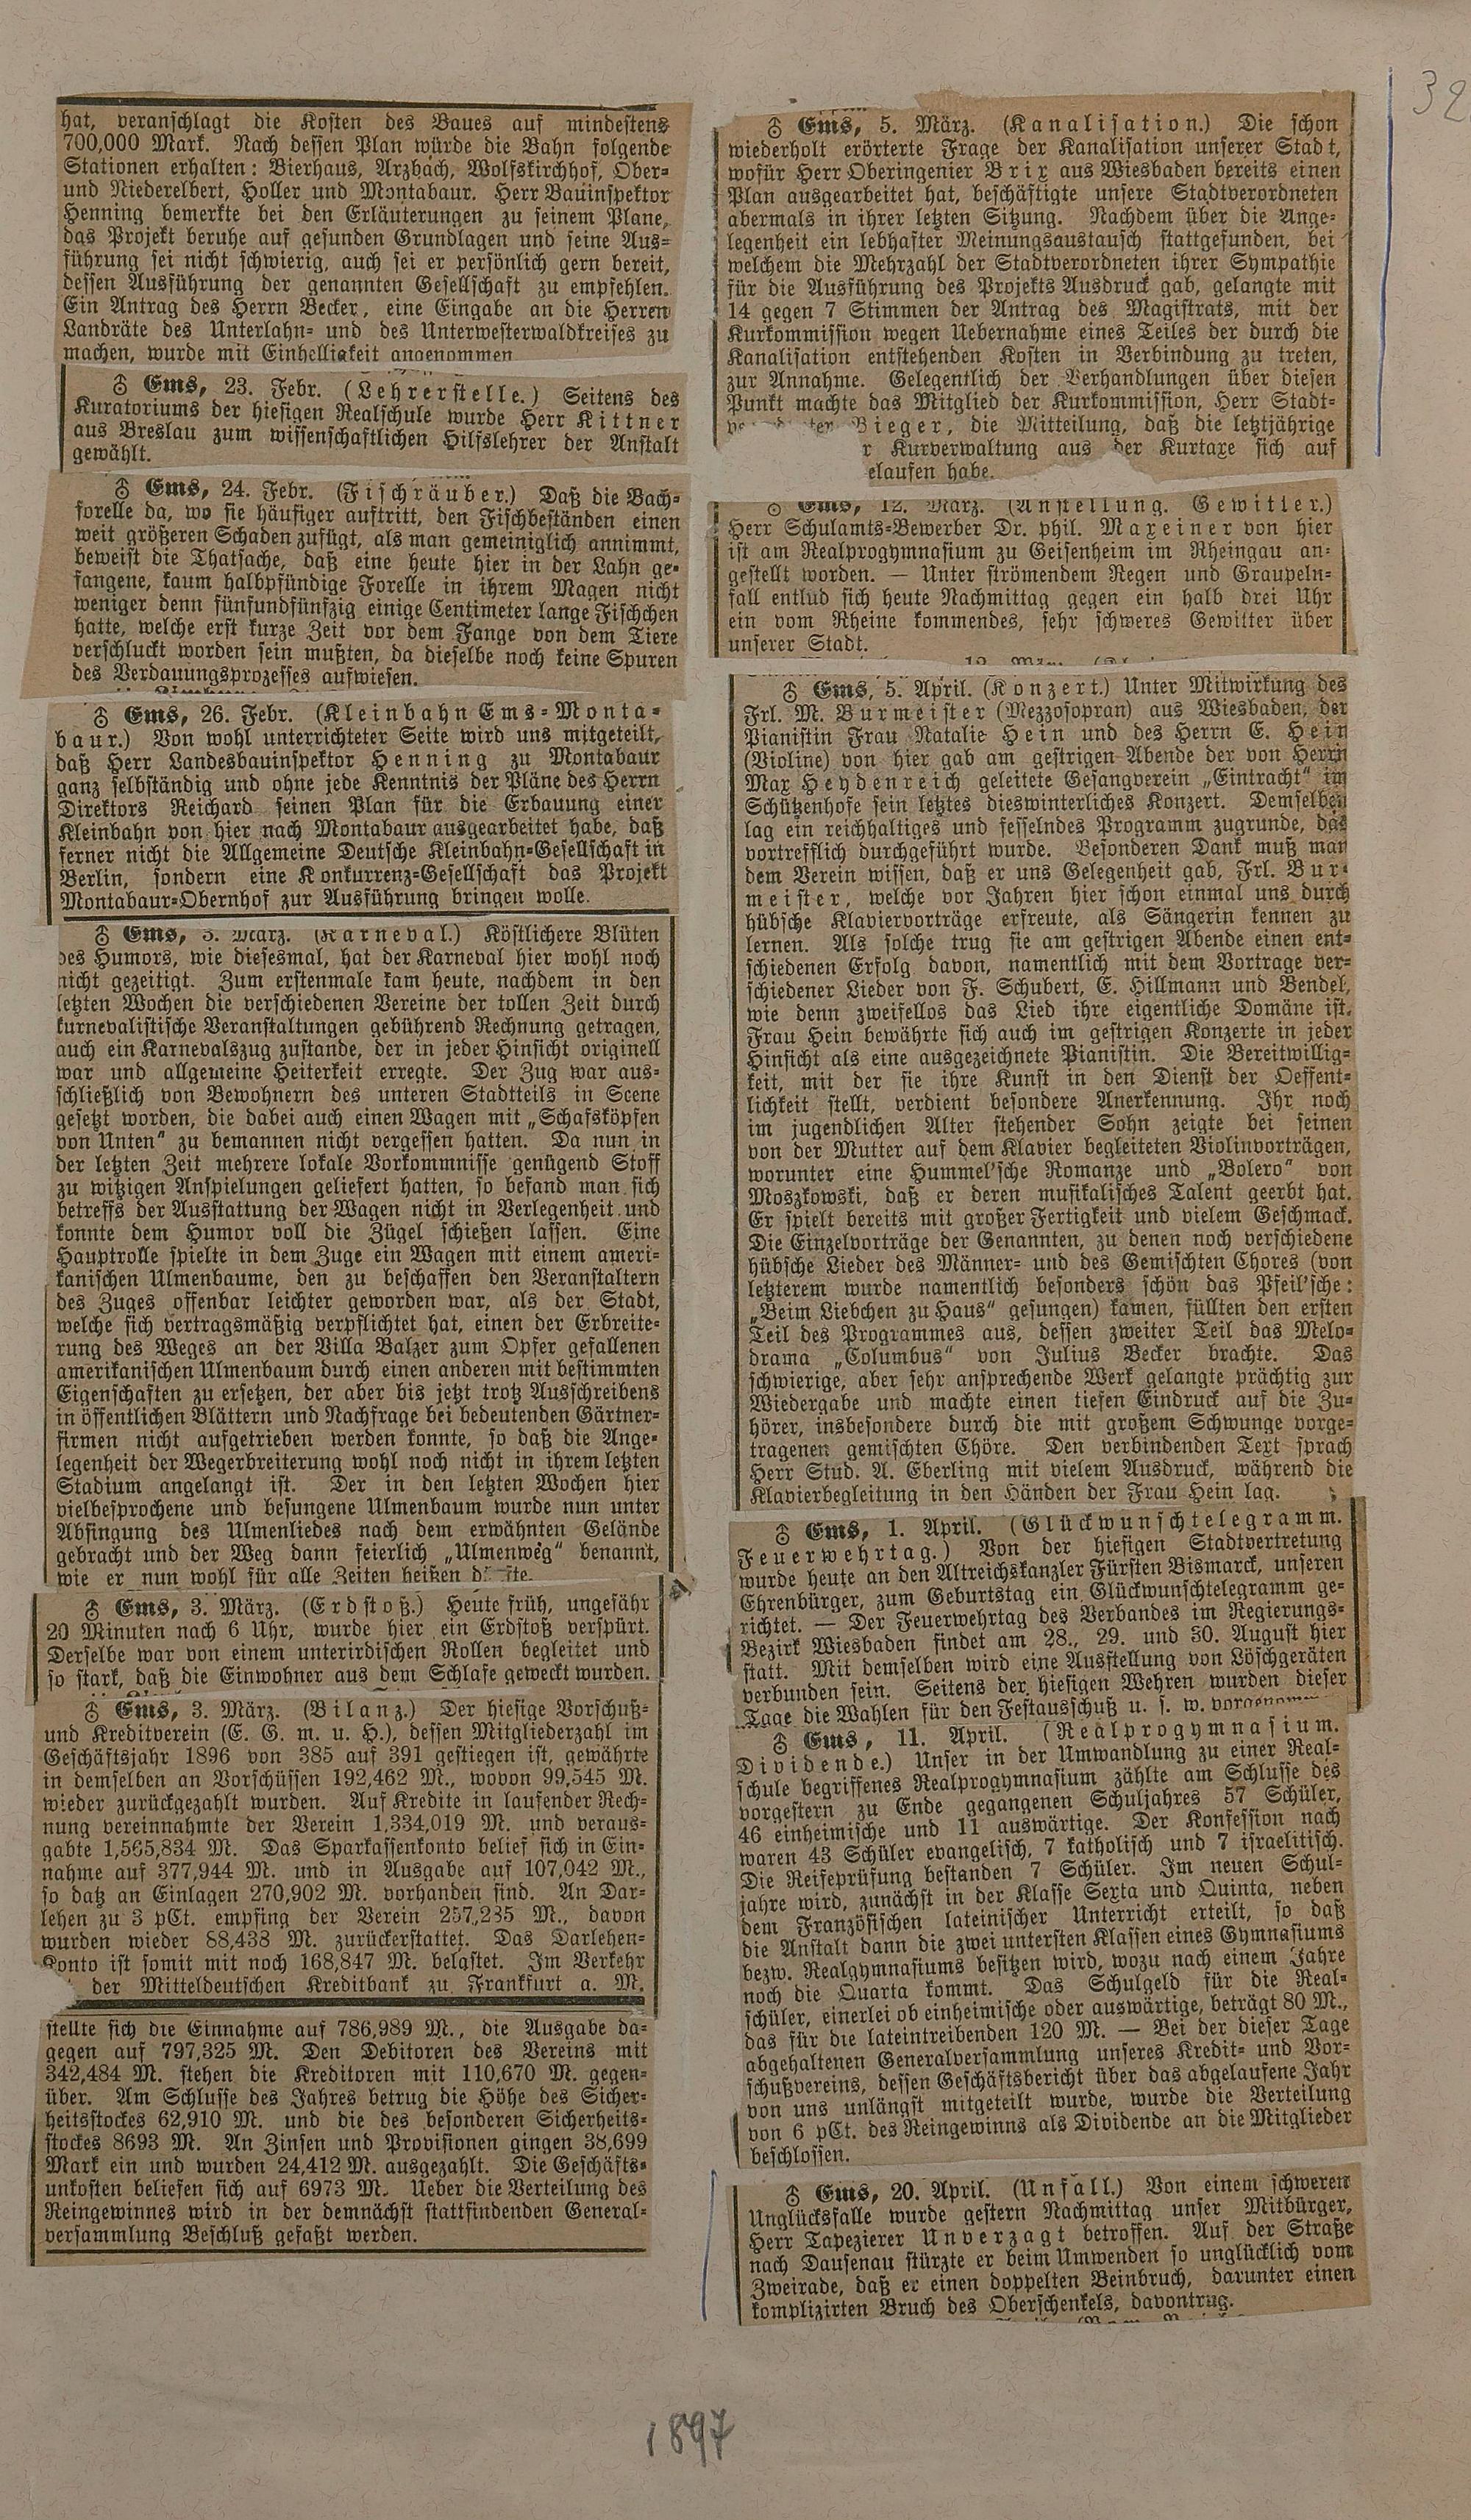 32
hat, veranschlagt die Kosten des Baues auf mindestens
700,000 Mark. Nach dessen Plan würde die Bahn folgende
Stationen erhalten: Bierhaus, Arzbach, Wolfskirchhof, Ober-
und Niederelbert, Holler und Montabaur. Herr Bauinspektor
Henning bemerkte bei den Erläuterungen zu seinem Plane,
das Projekt beruhe auf gesunden Grundlagen und seine Aus-
führung sei nicht schwierig, auch sei er persönlich gern bereit,
dessen Ausführung der genannten Gesellschaft zu empfehlen.
Ein Antrag des Herrn Becker, eine Eingabe an die Herren
Landräte des Unterlahn- und des Unterwesterwaldkreises zu
machen, wurde mit Einhelligkeit angenommen
♁ Ems, 23. Febr. (Lehrerstelle.) Seitens des
Kuratoriums der hiesigen Realschule wurde Herr Kittner
aus Breslau zum wissenschaftlichen Hilfslehrer der Anstalt
gewählt.
♁ Ems, 24. Febr. (Fischräuber.) Daß die Bach-
forelle da, wo sie häufiger auftritt, den Fischbeständen einen
weit größeren Schaden zufügt, als man gemeiniglich annimmt,
beweist die Thatsache, daß eine heute hier in der Lahn ge-
fangene, kaum halbpfündige Forelle in ihrem Magen nicht
weniger denn fünfundfünfzig einige Centimeter lange Fischchen
hatte, welche erst kurze Zeit vor dem Fange von dem Tiere
verschluckt worden sein mußten, da dieselbe noch keine Spuren
des Verdauungsprozesses aufwiesen.
♁ Ems, 26. Febr. (Kleinbahn Ems-Monta-
baur.) Von wohl unterrichteter Seite wird uns mitgeteilt,
daß Herr Landesbauinspektor Henning zu Montabaur
ganz selbständig und ohne jede Kenntnis der Pläne des Herrn
Direktors Reichard seinen Plan für die Erbauung einer
Kleinbahn von hier nach Montabaur ausgearbeitet habe, daß
ferner nicht die Allgemeine Deutsche Kleinbahn-Gesellschaft in
Berlin, sondern eine Konkurrenz-Gesellschaft das Projekt
Montabaur-Obernhof zur Ausführung bringen wolle.
♁ Ems, 3. März. (Karneval.) Köstlichere Blüten
des Humors, wie diesesmal, hat der Karneval hier wohl noch
nicht gezeitigt. Zum erstenmale kam heute, nachdem in den
letzten Wochen die verschiedenen Vereine der tollen Zeit durch
kurnevalistische Veranstaltungen gebührend Rechnung getragen,
auch ein Karnevalszug zustande, der in jeder Hinsicht originell
war und allgemeine Heiterkeit erregte. Der Zug war aus-
schließlich von Bewohnern des unteren Stadtteils in Scene
gesetzt worden, die dabei auch einen Wagen mit „Schafsköpfen
von Unten“ zu bemannen nicht vergessen hatten. Da nun in
der letzten Zeit mehrere lokale Vorkommnisse genügend Stoff
zu witzigen Anspielungen geliefert hatten, so befand man sich
betreffs der Ausstattung der Wagen nicht in Verlegenheit und
konnte dem Humor voll die Zügel schießen lassen. Eine
Hauptrolle spielte in dem Zuge ein Wagen mit einem ameri-
kanischen Ulmenbaume, den zu beschaffen den Veranstaltern
des Zuges offenbar leichter geworden war, als der Stadt,
welche sich vertragsmäßig verpflichtet hat, einen der Erbreite-
rung des Weges an der Villa Balzer zum Opfer gefallenen
amerikanischen Ulmenbaum durch einen anderen mit bestimmten
Eigenschaften zu ersetzen, der aber bis jetzt trotz Ausschreibens
in öffentlichen Blättern und Nachfrage bei bedeutenden Gärtner-
firmen nicht aufgetrieben werden konnte, so daß die Ange-
legenheit der Wegerbreiterung wohl noch nicht in ihrem letzten
Stadium angelangt ist. Der in den letzten Wochen hier
vielbesprochene und besungene Ulmenbaum wurde nun unter
Absingung des Ulmenliedes nach dem erwähnten Gelände
gebracht und der Weg dann feierlich „Ulmenweg“ benannt,
wie er nun wohl für alle Zeiten heißen
♁ Ems, 3. März. (Erdstoß.) Heute früh, ungefähr
20 Minuten nach 6 Uhr, wurde hier ein Erdstoß verspürt.
Derselbe war von einem unterirdischen Rollen begleitet und
so stark, daß die Einwohner aus dem Schlafe geweckt wurden.
♁ Ems, 3. März. (Bilanz.) Der hiesige Vorschuß-
und Kreditverein (E. G. m. u. H.), dessen Mitgliederzahl im
Geschäftsjahr 1896 von 385 auf 391 gestiegen ist, gewährte
in demselben an Vorschüssen 192,462 M., wovon 99,545 M.
wieder zurückgezahlt wurden. Auf Kredite in laufender Rech-
nung vereinnahmte der Verein 1,334,019 M. und veraus-
gabte 1,565,834 M. Das Sparkassenkonto belief sich in Ein-
nahme auf 377,944 M. und in Ausgabe auf 107,042 M.,
so daß an Einlagen 270,902 M. vorhanden sind. An Dar-
lehen zu 3 pCt. empfing der Verein 257,285 M., davon
wurden wieder 88,438 M. zurückerstattet. Das Darlehen-
Konto ist somit mit noch 168,847 M. belastet. Im Verkehr
der Mitteldeutschen Kreditbank zu Frankfurt a. M.
stellte sich die Einnahme auf 786,989 M., die Ausgabe da-
gegen auf 797,325 M. Den Debitoren des Vereins mit
342,484 M. stehen die Kreditoren mit 110,670 M. gegen-
über. Am Schlusse des Jahres betrug die Höhe des Sicher-
heitsstockes 62,910 M. und die des besonderen Sicherheits-
stockes 8693 M. An Zinsen und Provisionen gingen 38,699
Mark ein und wurden 24,412 M. ausgezahlt. Die Geschäfts-
unkosten beliefen sich auf 6973 M. Ueber die Verteilung des
Reingewinnes wird in der demnächst stattfindenden General-
versammlung Beschluß gefaßt werden.
♁ Ems, 5. März. (Kanalisation.) Die schon
wiederholt erörterte Frage der Kanalisation unserer Stadt,
wofür Herr Oberingenier Brix aus Wiesbaden bereits einen
Plan ausgearbeitet hat, beschäftigte unsere Stadtverordneten
abermals in ihrer letzten Sitzung. Nachdem über die Ange-
legenheit ein lebhafter Meinungsaustausch stattgefunden, bei
welchem die Mehrzahl der Stadtverordneten ihrer Sympathie
für die Ausführung des Projekts Ausdruck gab, gelangte mit
14 gegen 7 Stimmen der Antrag des Magistrats, mit der
Kurkommission wegen Uebernahme eines Teiles der durch die
Kanalisation entstehenden Kosten in Verbindung zu treten,
zur Annahme. Gelegentlich der Verhandlungen über diesen
Punkt machte das Mitglied der Kurkommission, Herr Stadt-
Bieger, die Mitteilung, daß die letztjährige
r Kurverwaltung aus der Kurtaxe sich auf
elaufen habe.
♁ Ems, 12. März. (Anstellung. Gewitter.)
Herr Schulamts-Bewerber Dr. phil. Maxeiner von hier
ist am Realprogymnasium zu Geisenheim im Rheingau an-
gestellt worden. — Unter strömendem Regen und Graupeln-
fall entlud sich heute Nachmittag gegen ein halb drei Uhr
ein vom Rheine kommendes, sehr schweres Gewitter über
unserer Stadt.
♁ Ems, 5. April. (Konzert.) Unter Mitwirkung des
Frl. M. Burmeister (Mezzosopran) aus Wiesbaden, der
Pianistin Frau Natalie Hein und des Herrn E. Hein
(Violine) von hier gab am gestrigen Abende der von Herrn
Max Heydenreich geleitete Gesangverein „Eintracht“ im
Schützenhofe sein letztes dieswinterliches Konzert. Demselben
lag ein reichhaltiges und fesselndes Programm zugrunde, das
vortrefflich durchgeführt wurde. Besonderen Dank muß man
dem Verein wissen, daß er uns Gelegenheit gab, Frl. Bur-
meister, welche vor Jahren hier schon einmal uns durch
hübsche Klaviervorträge erfreute, als Sängerin kennen zu
lernen. Als solche trug sie am gestrigen Abende einen ent-
schiedenen Erfolg davon, namentlich mit dem Vortrage ver-
schiedener Lieder von F. Schubert, E. Hillmann und Bendel,
wie denn zweifellos das Lied ihre eigentliche Domäne ist.
Frau Hein bewährte sich auch im gestrigen Konzerte in jeder
Hinsicht als eine ausgezeichnete Pianistin. Die Bereitwillig-
keit, mit der sie ihre Kunst in den Dienst der Oeffent-
lichkeit stellt, verdient besondere Anerkennung. Ihr noch
im jugendlichen Alter stehender Sohn zeigte bei seinen
von der Mutter auf dem Klavier begleiteten Violinvorträgen,
worunter eine Hummel'sche Romanze und „Bolero“ von
Moszkowski, daß er deren musikalisches Talent geerbt hat.
Er spielt bereits mit großer Fertigkeit und vielem Geschmack.
Die Einzelvorträge der Genannten, zu denen noch verschiedene
hübsche Lieder des Männer- und des Gemischten Chores (von
letzterem wurde namentlich besonders schön das Pfeil'sche:
„Beim Liebchen zu Haus“ gesungen) kamen, füllten den ersten
Teil des Programmes aus, dessen zweiter Teil das Melo-
drama „Columbus“ von Julius Becker brachte. Das
schwierige, aber sehr ansprechende Werk gelangte prächtig zur
Wiedergabe und machte einen tiefen Eindruck auf die Zu-
hörer, insbesondere durch die mit großem Schwunge vorge-
tragenen gemischten Chöre. Den verbindenden Text sprach
Herr Stud. A. Eberling mit vielem Ausdruck, während die
Klavierbegleitung in den Händen der Frau Hein lag.
♁ Ems, 1. April. (Glückwunschtelegramm.
Feuerwehrtag.) Von der hiesigen Stadtvertretung
wurde heute an den Altreichskanzler Fürsten Bismarck, unseren
Ehrenbürger, zum Geburtstag ein Glückwunschtelegramm ge-
richtet. — Der Feuerwehrtag des Verbandes im Regierungs-
Bezirk Wiesbaden findet am 28., 29. und 30. August hier
statt. Mit demselben wird eine Ausstellung von Löschgeräten
verbunden sein. Seitens der hiesigen Wehren wurden dieser
Tage die Wahlen für den Festausschuß u. s. w.
♁ Ems, 11. April. (Realprogymnasium.
Dividende.) Unser in der Umwandlung zu einer Real-
schule begriffenes Realprogymnasium zählte am Schlusse des
vorgestern zu Ende gegangenen Schuljahres 57 Schüler,
46 einheimische und 11 auswärtige. Der Konfession nach
waren 43 Schüler evangelisch, 7 katholisch und 7 israelitisch.
Die Reifeprüfung bestanden 7 Schüler. Im neuen Schul-
jahre wird, zunächst in der Klasse Sexta und Quinta, neben
dem Französischen lateinischer Unterricht erteilt, so daß
die Anstalt dann die zwei untersten Klassen eines Gymnasiums
bezw. Realgymnasiums besitzen wird, wozu nach einem Jahre
noch die Quarta kommt. Das Schulgeld für die Real-
schüler, einerlei ob einheimische oder auswärtige, beträgt 80 M.,
das für die lateintreibenden 120 M. — Bei der dieser Tage
abgehaltenen Generalversammlung unseres Kredit- und Vor-
schußvereins, dessen Geschäftsbericht über das abgelaufene Jahr
von uns unlängst mitgeteilt wurde, wurde die Verteilung
von 6 pCt. des Reingewinns als Dividende an die Mitglieder
beschlossen.
♁ Ems, 20. April. (Unfall.) Von einem schweren
Unglücksfalle wurde gestern Nachmittag unser Mitbürger,
Herr Tapezierer Unverzagt betroffen. Auf der Straße
nach Dausenau stürzte er beim Umwenden so unglücklich vom
Zweirade, daß er einen doppelten Beinbruch, darunter einen
komplizirten Bruch des Oberschenkels, davontrug.
1897